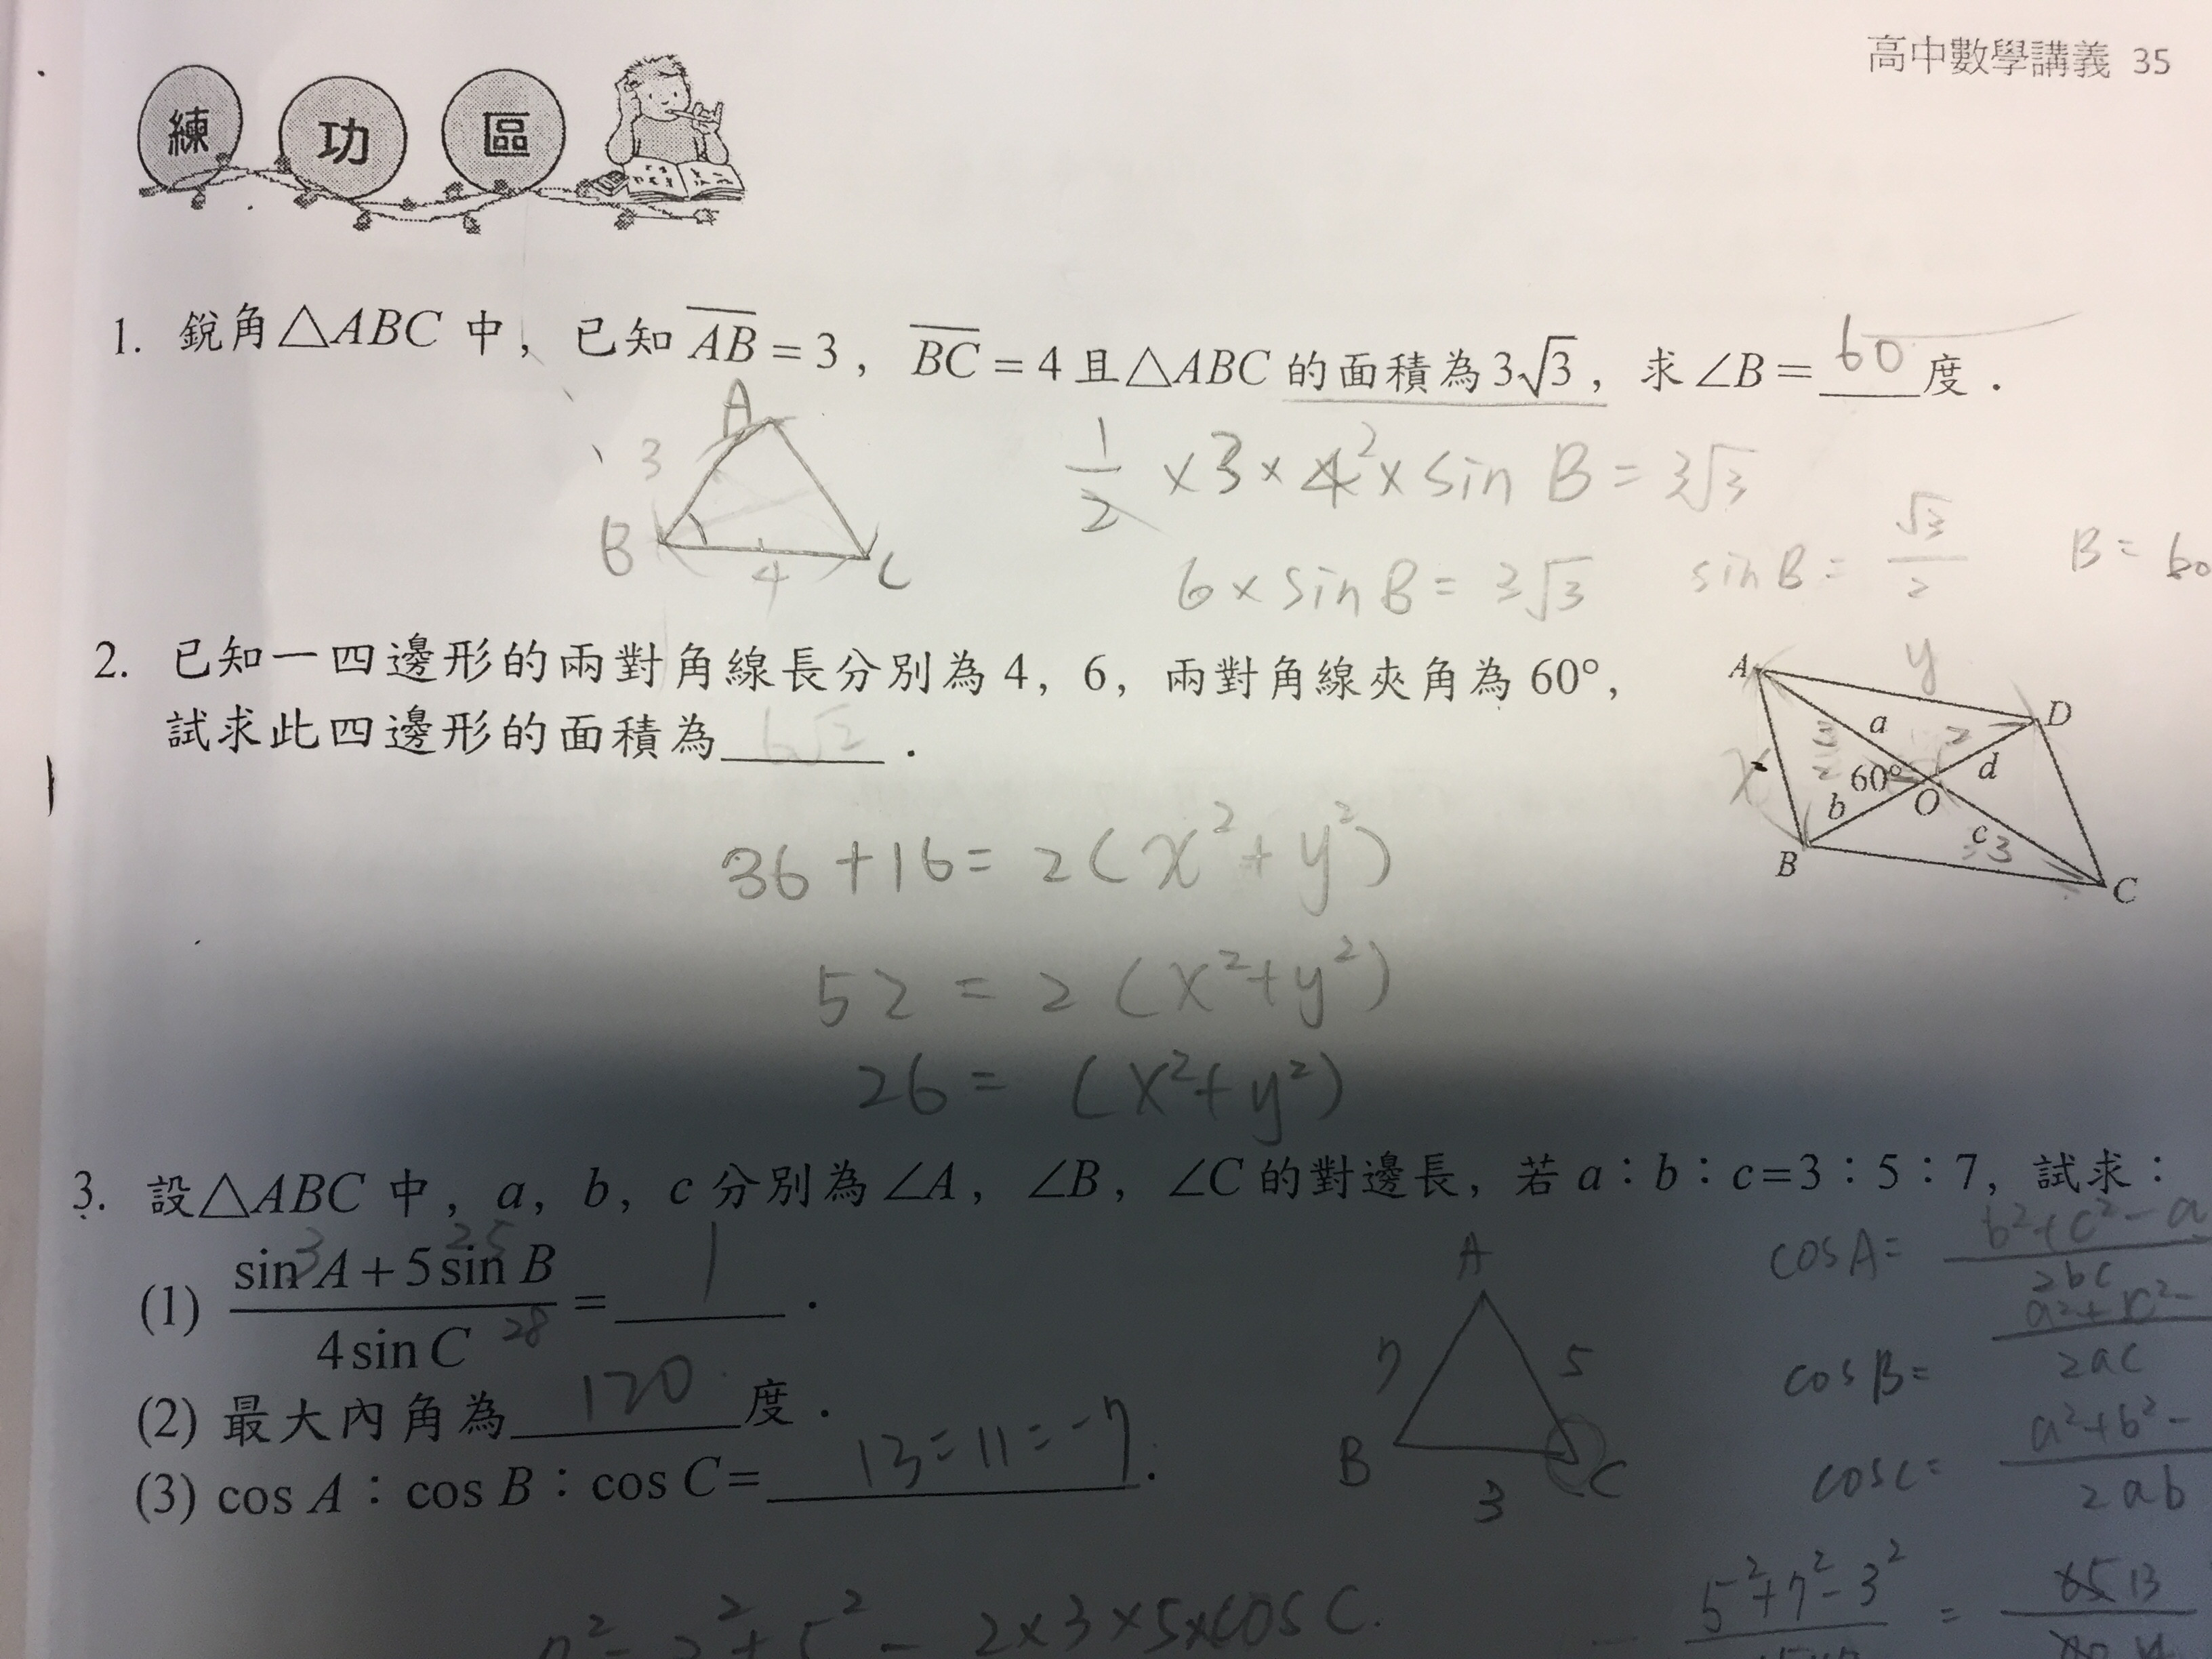 高中數學講義 35
練功區
1. 銳角△ABC 中，已知 AB = 3，BC = 4 且△ABC 的面積為 3√3，求∠B = 60 度．
A
3
B 4 C
1/2 × 3 × 4² × sin B = 3√3
6 × sin B = 3√3 sin B = √3/2 B = 60
2. 已知一四邊形的兩對角線長分別為 4，6，兩對角線夾角為 60°，
試求此四邊形的面積為 ．
y
A D
a 2
x 3/2 60° O d
b
B c =3 C
36 + 16 = 2(x² + y²)
52 = 2(x² + y²)
26 = (x² + y²)
3. 設△ABC 中，a，b，c 分別為∠A，∠B，∠C 的對邊長，若 a：b：c=3：5：7，試求：
3 25
(1) (sin A + 5 sin B)/(4 sin C) = 1 ．
28
(2) 最大內角為 120 度．
(3) cos A：cos B：cos C = 13:11:-7 ．
A
7 5
B 3 C
cos A = (b² + c² - a)/(2bc)
cos B = (a² + c² -)/(2ac)
cos C = (a² + b² -)/(2ab)
(5² + 7² - 3²) = 65 13
- 2×3×5×cos C.